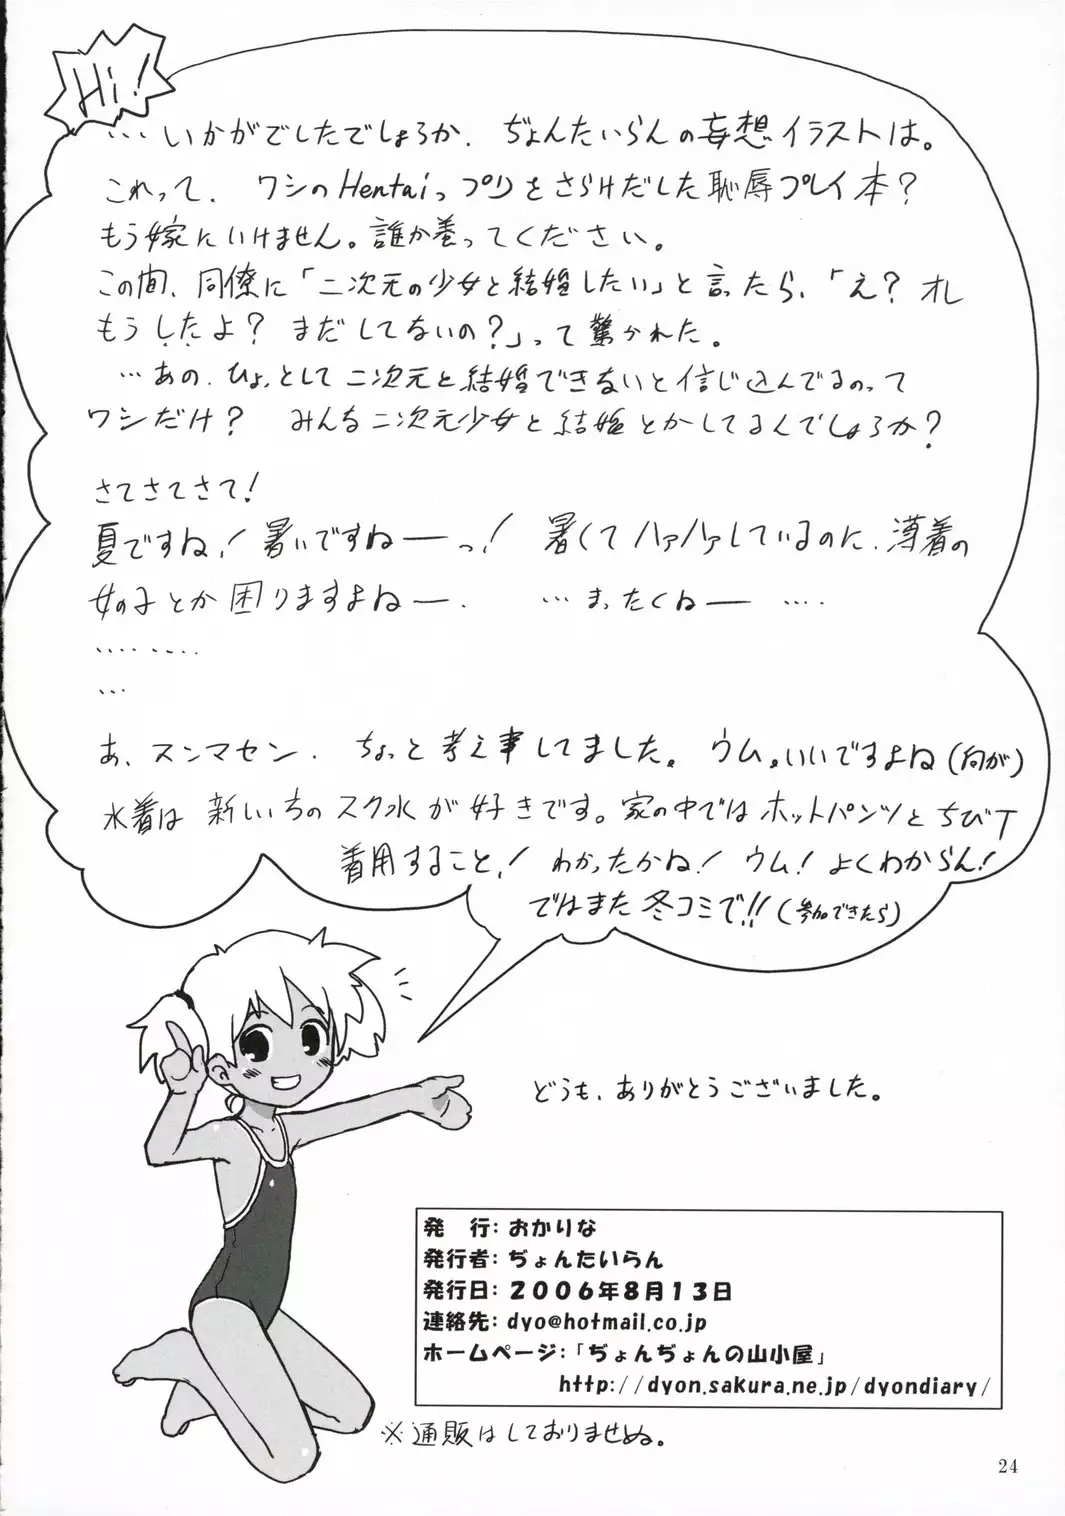 Hi!
…いかがでしたでしょうか。ぢょんたいらんの妄想イラストは。
これって、ワシのHentaiっプリをさらけだした恥辱プレイ本？
もう嫁にいけません。誰か貰ってください。
この間、同僚に「二次元の少女と結婚したい」と言ったら、「え？オレ
もうしたよ？まだしてないの？」って驚かれた。
…あの、ひょっとして二次元と結婚できないと信じ込んでるのって
ワシだけ？ みんな二次元少女と結婚とかしてるんでしょうか？
さてさてさて！
夏ですね！暑いですねーっ！ 暑くてハァハァしているのに、薄着の
女の子とか困りますよねー。 …まったくねー ….
………
…
あ、スンマセン。ちょっと考え事してました。ウム。いいですよね(何が)
水着は新しいちのスク水が好きです。家の中ではホットパンツとちびT
着用すること！わかったかね！ウム！よくわからん！
ではまた冬コミで!!(参加できたら)
どうも、ありがとうございました。
発　行：おかりな
発行者：ぢょんたいらん
発行日：２００６年８月１３日
連絡先：dyo@hotmail.co.jp
ホームページ：「ぢょんぢょんの山小屋」
http://dyon.sakura.ne.jp/dyondiary/
※通販はしておりませぬ。
24